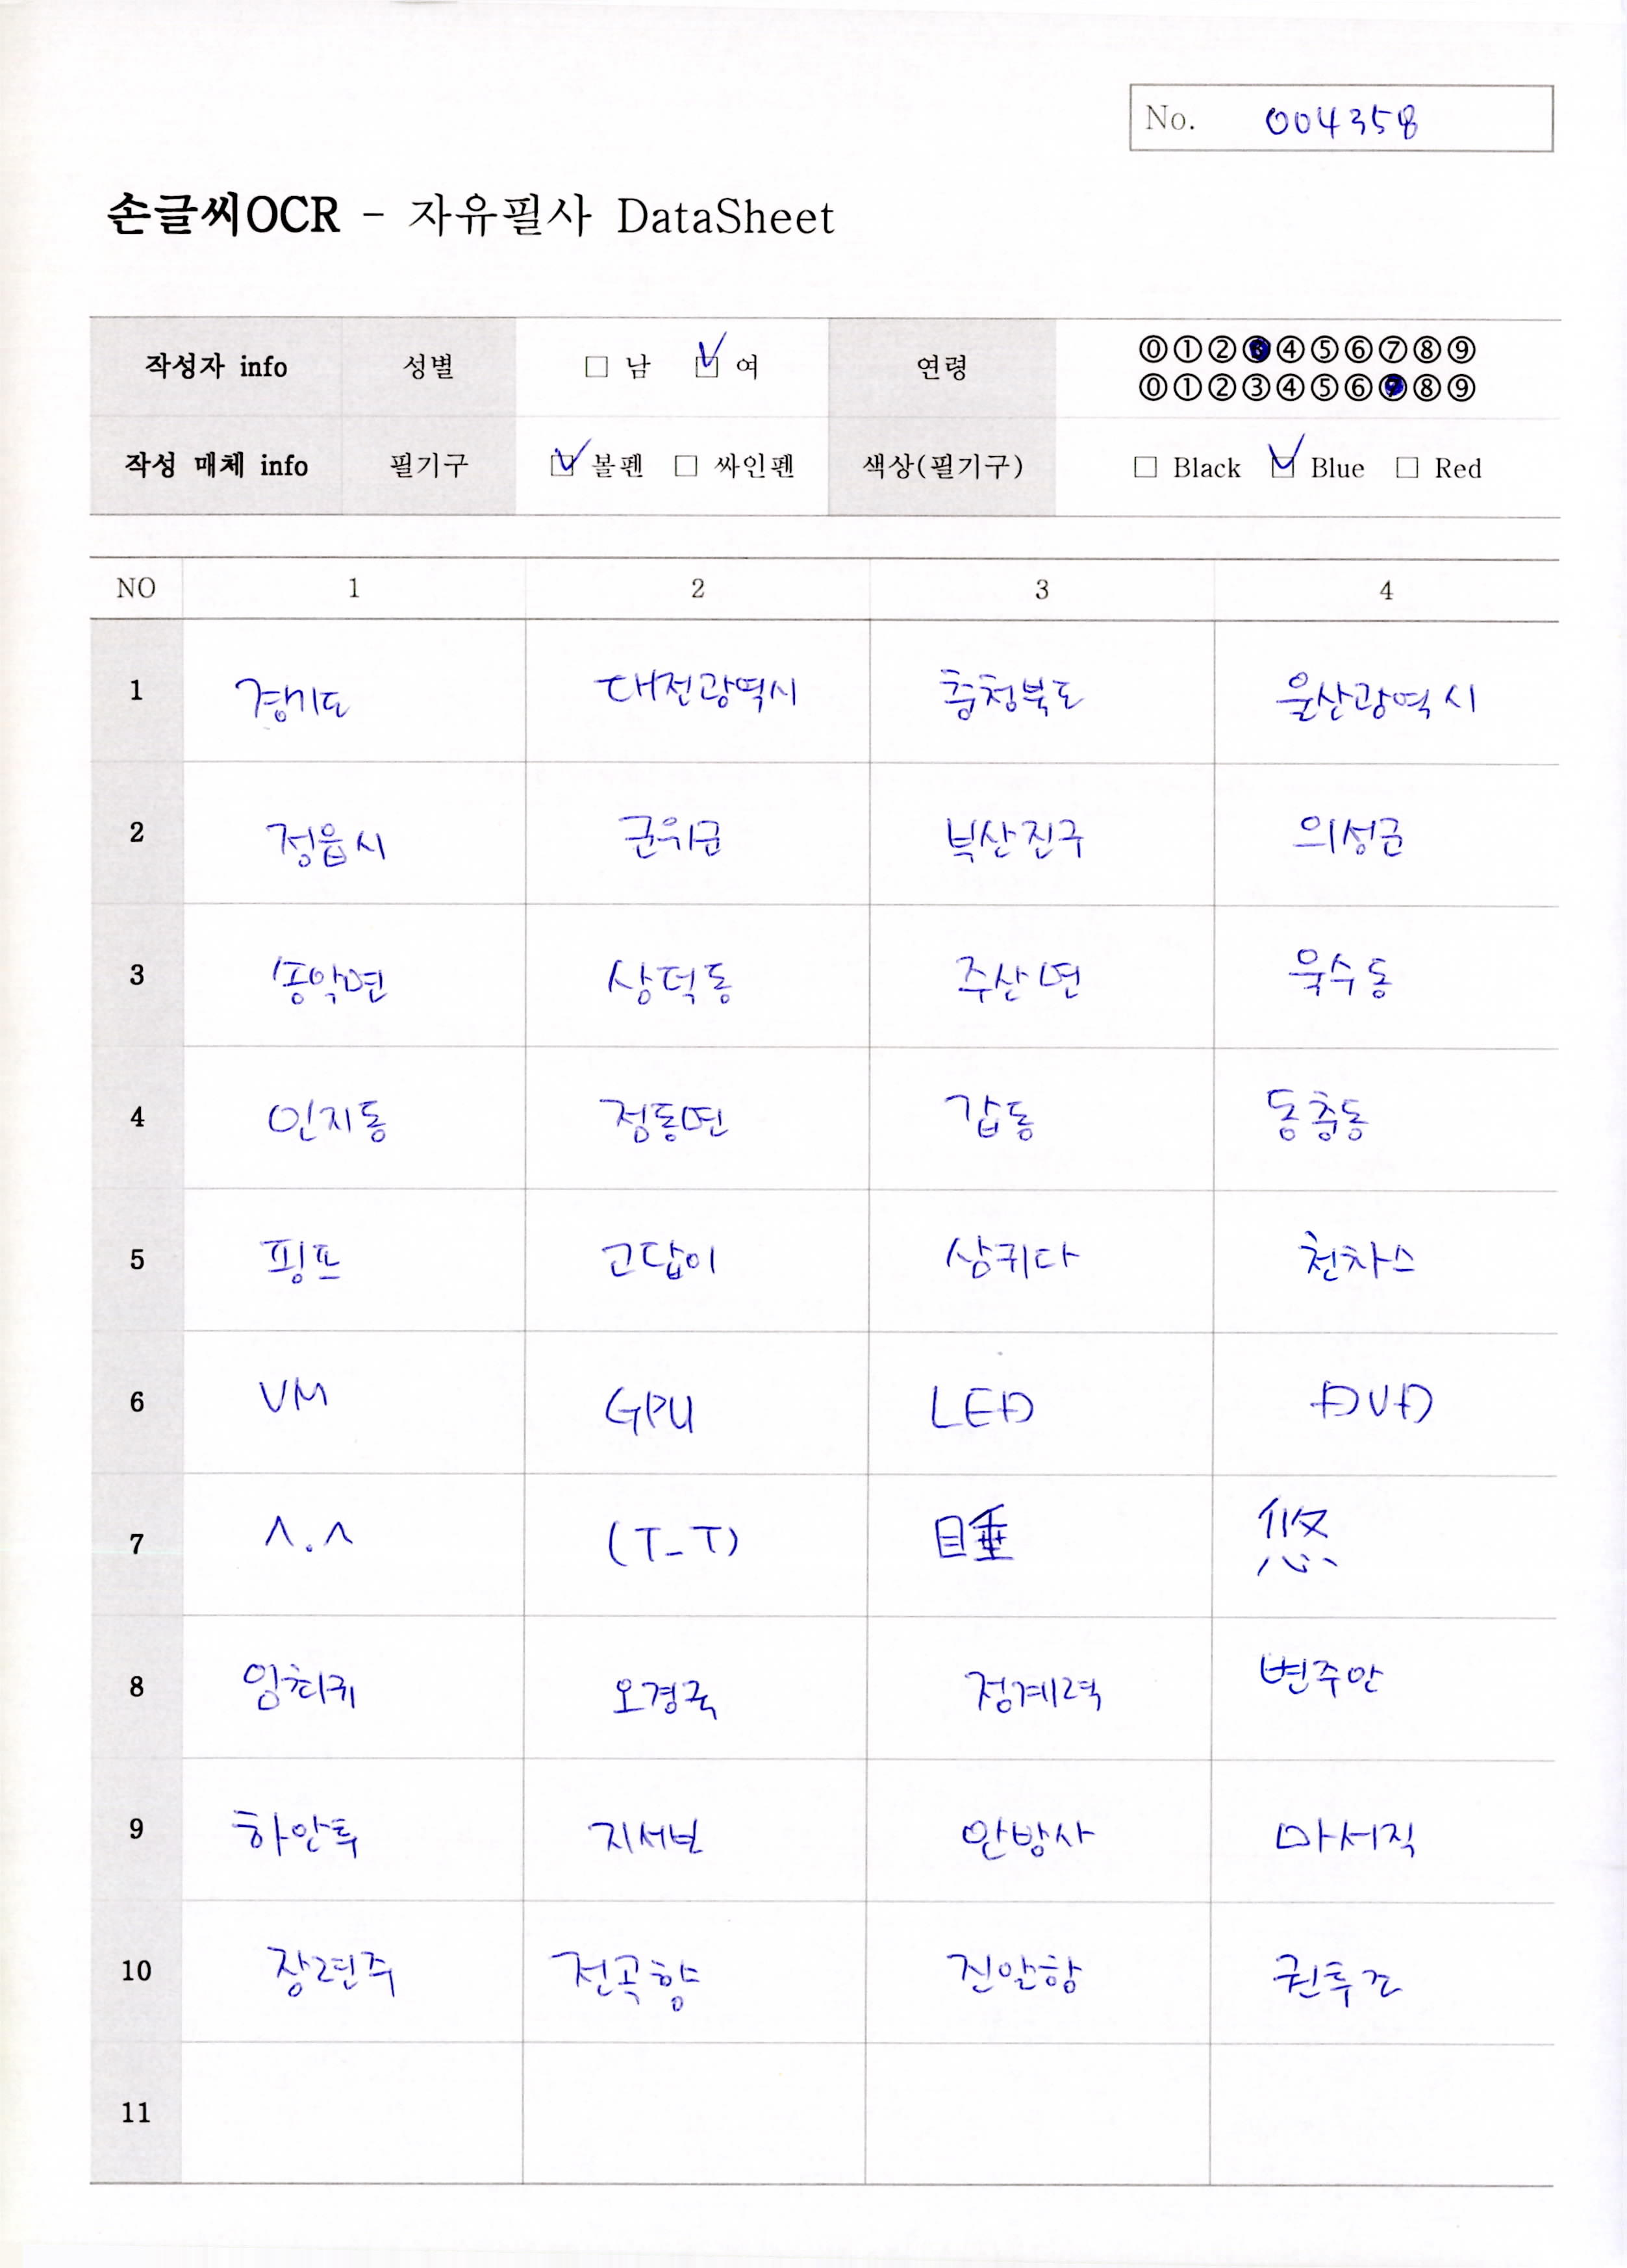 No. 004358
손글씨OCR - 자유필사 DataSheet
작성자 info 성별 □ 남 ☑ 여 연령 ⓪①②③④⑤⑥⑦⑧⑨
⓪①②③④⑤⑥⑦⑧⑨
작성 매체 info 필기구 ☑ 볼펜 □ 싸인펜 색상(필기구) □ Black ☑ Blue □ Red
NO 1 2 3 4
1 경기도 대전광역시 충청북도 울산광역시
2 정읍시 군위군 부산진구 의성군
3 송악면 상덕동 주산면 욱수동
4 인지동 정동면 갑동 동충동
5 핑프 고답이 삼귀다 천차스
6 VM GPU LED DVD
7 ^.^ (T_T) 睡 悠
8 임최귀 오경국 정계력 변주안
9 하안투 지서보 안방사 마서직
10 장련주 전곡향 진안항 권투조
11